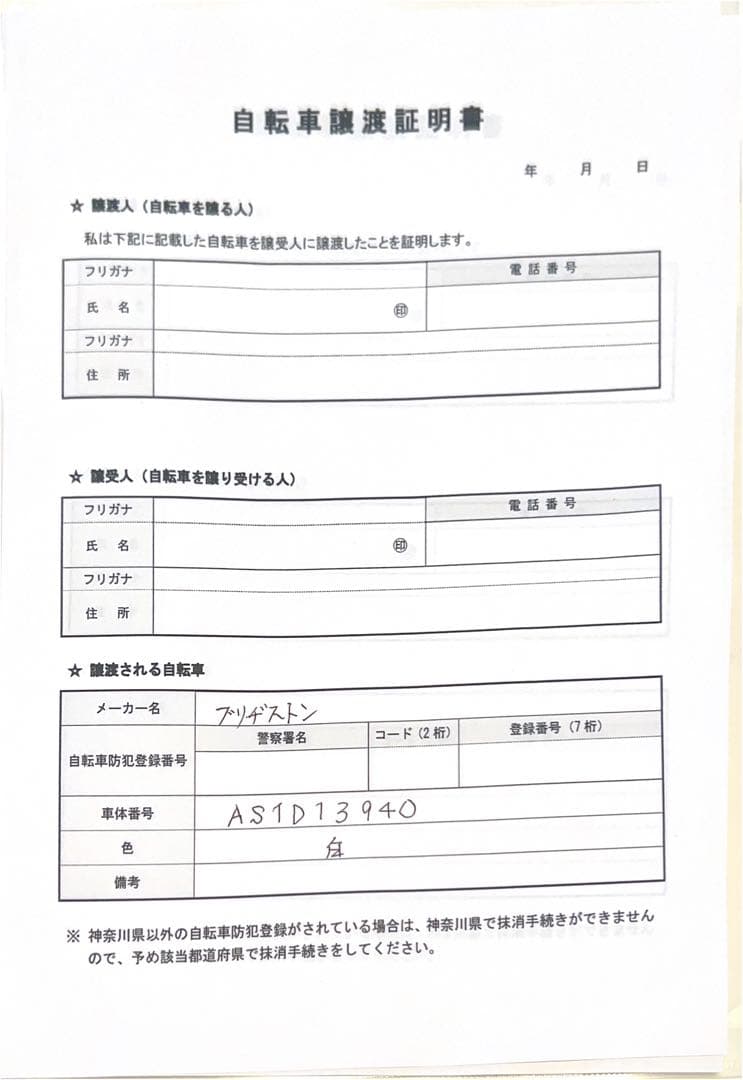 自転車譲渡証明書
年 月 日
☆ 譲渡人（自転車を譲る人）
私は下記に記載した自転車を譲受人に譲渡したことを証明します。
フリガナ 電話番号
氏 名 ㊞
フリガナ
住 所
☆ 譲受人（自転車を譲り受ける人）
フリガナ 電話番号
氏 名 ㊞
フリガナ
住 所
☆ 譲渡される自転車
メーカー名 ブリヂストン
自転車防犯登録番号 警察署名 コード（2桁） 登録番号（7桁）
車体番号 AS1D13940
色
備考
※ 神奈川県以外の自転車防犯登録がされている場合は、神奈川県で抹消手続きができません
ので、予め該当都道府県で抹消手続きをしてください。